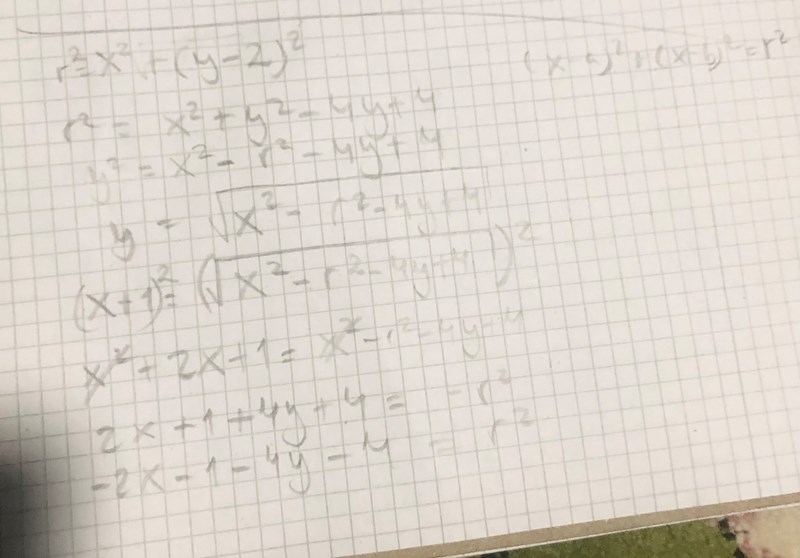 r²=x²+(y-2)²
(x-a)²+(x-b)²=r²
r² = x²+y²-4y+4
y² = x²-r²-4y+4
y = √x²-r²-4y+4
(x+1)²=(√x²-r²-4y+4)²
x²+2x+1=x²-r²-4y+4
2x+1+4y+4=-r²
-2x-1-4y-4=r²